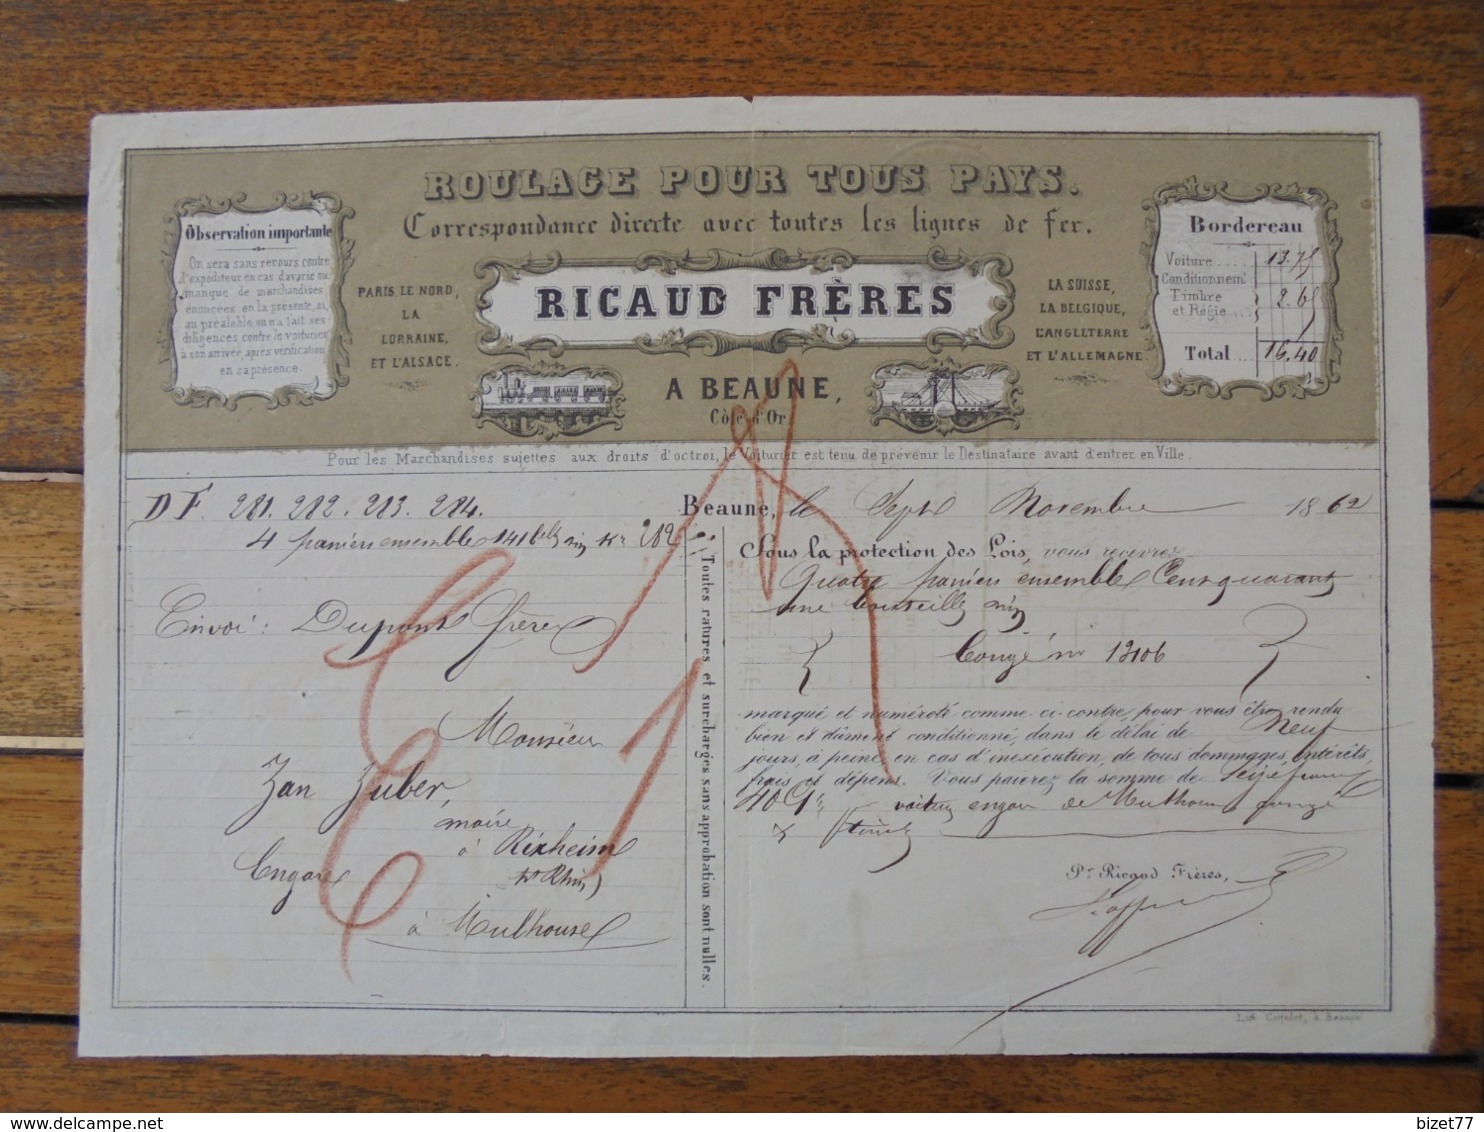 ROULAGE POUR TOUS PAYS.
Correspondance directe avec toutes les lignes de fer.
Observation importante
On sera sans recours contre
l'expéditeur en cas d'avarie ou
manque de marchandises
énoncées en la présente, si,
au préalable, on n'a fait ses
diligences contre le voiturier
à son arrivée, après vérification
en sa présence.
PARIS, LE NORD,
LA
LORRAINE,
ET L'ALSACE.
RICAUD FRÈRES
A BEAUNE,
Côte d'Or
LA SUISSE,
LA BELGIQUE,
L'ANGLETERRE
ET L'ALLEMAGNE
Bordereau
Voiture .... 13.75
Conditionnemt
Timbre
et Régie ... 2.65
Total .... 16.40
Pour les Marchandises sujettes aux droits d'octroi, le Voiturier est tenu de prévenir le Destinataire avant d'entrer en Ville.
DF. 281. 282. 283. 284.
4 paniers ensemble 141 belles vin Kos 282
Envoi : Dupont frères
Monsieur
Jean Zuber,
maire
à Rixheim
(Ht Rhin)
En gare
à Mulhouse
Toutes ratures et surcharges sans approbation sont nulles.
Beaune, le Sept Novembre 1862
Sous la protection des Lois, vous recevrez
Quatre paniers ensemble Cent quarante
une bouteilles vin
Congé no 12106
marqué et numéroté comme ci-contre, pour vous être rendu
bien et dûment conditionné, dans le délai de Neuf
jours, à peine, en cas d'inexécution, de tous dommages, intérêts,
frais et dépens. Vous paierez la somme de Seize francs
40 cs voiture en gare de Mulhouse congé
& timbre
Pr Ricaud Frères,
Lith. à Beaune
bizet77